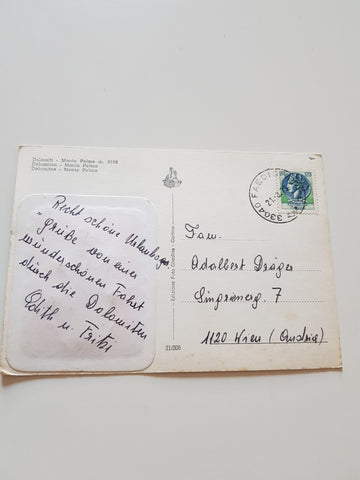 Dolomiti - Monte Pelmo m. 3168
Dolomiten - Monte Pelmo
Dolomites - Monte Pelmo
Recht schöne Urlaubs
grüße von einer
wunderschönen Fahrt
durch die Dolomiten
Edith u. Fritz
- Edizione Foto Ghedina - Cortina -
21/006
33040
21-
Fam.
Adalbert Dräger
7
1120 Wien (Austria)